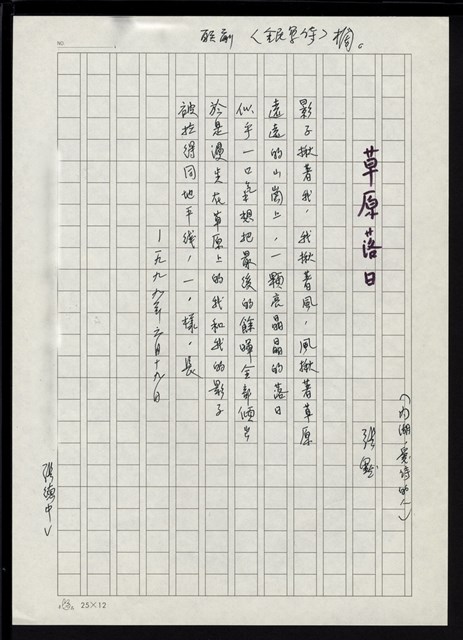 聯副〈全民寫詩〉稿。
(內湖，愛詩的人)
張
草原落日
影子揪著我，我揪著風，風揪著草原
遠遠的山崗上，一顆亮晶晶的落日
似乎一口氣想把最後的餘暉全部傾出
於是漫步在草原上的我和我的影子
被拉得同地平线，一，樣，長
—一九九九年六月十九日
張德中
25×12